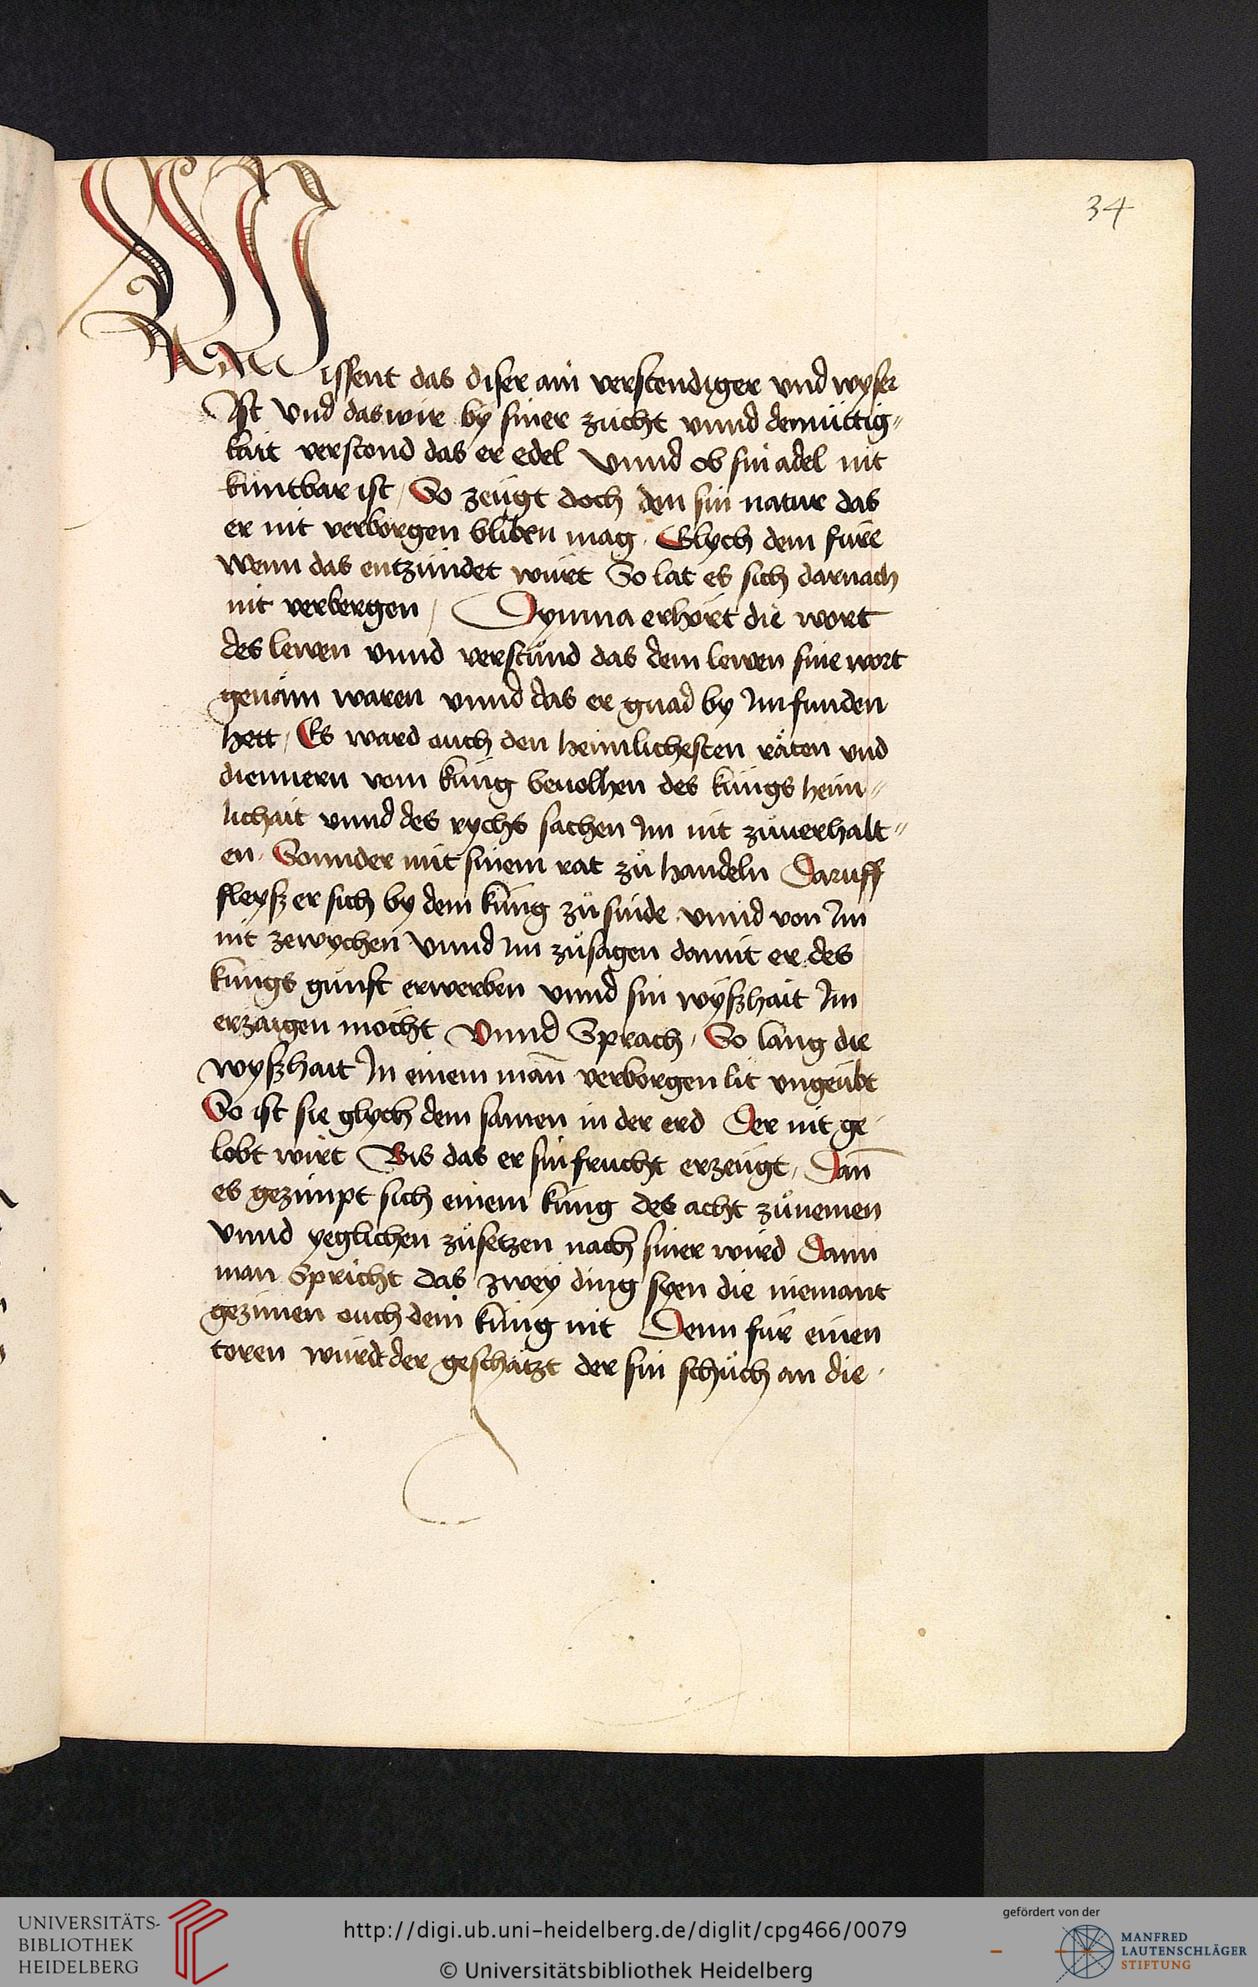 34
Wissent das diser ain verstendiger vnd wyser
Ist Vnd das wir by siner zücht vnnd demüttig„
kait verstond das er edel Vnnd ob sin adel nit
kuntbar ist, So zeügt doch den sin natur das
er nit verborgen bliben mag. Glych dem füre
wenn das entzündet würt So lat es sich darnach
nit verbergen, Dymna erhort die wort
des lewen vnnd verstünd das dem lewen sine wort
genäm waren vnnd das er gnad by Im funden
hett, Es ward ouch den heimlichesten räten vnd
diennern vom küng beuolhen des küngs heim„
lichait vnnd des rychs sachen Im nit züuerhalt„
en. Sonnder mit sinem rat zü handeln Daruff
fleysz er sich by dem küng zü sinde vnnd von Im
nit zewychen Vnnd Im züsagen damit er des
küngs gunst erwerben vnnd sin wyszhait Im
erzaigen mocht Vnnd Sprach, So lang die
wyszhait In einem man̄ verborgen lit vngeübt
So ist sie glych dem samen in der erd Der nit ge
lobt wirt Bis das er sin frucht erzeügt, Dan̄
es gezimpt sich einem küng des acht zünemen
Vnnd yeglichen züsetzen nach siner wird Dann
man Spricht das zwey ding syen die niemant
gezimen ouch dem küng nit Denn für einen
toren würdt der geschätzt der sin schüch an die
UNIVERSITÄTS-
BIBLIOTHEK
HEIDELBERG
http://digi.ub.uni-heidelberg.de/diglit/cpg466/0079
© Universitätsbibliothek Heidelberg
gefördert von der
MANFRED
LAUTENSCHLÄGER
STIFTUNG